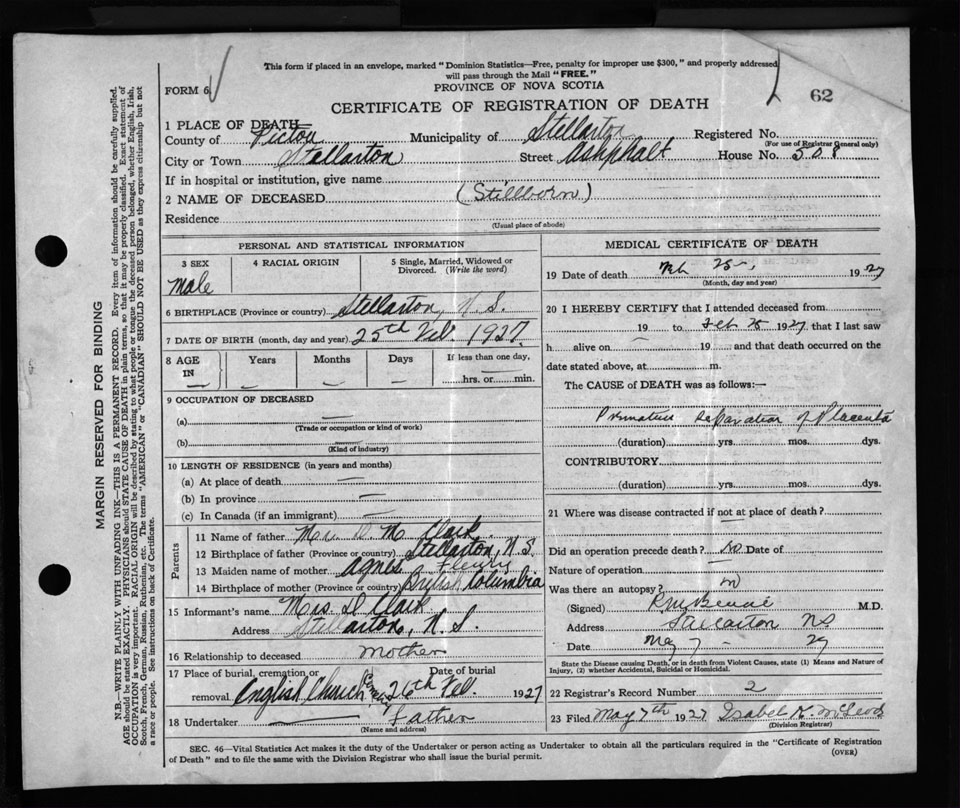 This form if placed in an envelope, marked "Dominion Statistics—Free, penalty for improper use $300," and properly addressed,
will pass through the Mail "FREE."
FORM 6.
PROVINCE OF NOVA SCOTIA
62
CERTIFICATE OF REGISTRATION OF DEATH
1 PLACE OF DEATH
County of Pictou Municipality of Stellarton Registered No.
(For use of Registrar General only)
City or Town Stellarton Street Ashphalt House No. 508
If in hospital or institution, give name
2 NAME OF DECEASED (Stillborn)
Residence
(Usual place of abode)
PERSONAL AND STATISTICAL INFORMATION
3 SEX 4 RACIAL ORIGIN 5 Single, Married, Widowed or
Divorced. (Write the word)
Male
6 BIRTHPLACE (Province or country) Stellarton, N.S.
7 DATE OF BIRTH (month, day and year) 25th Feb. 1927.
8 AGE Years Months Days If less than one day,
IN
hrs. or min.
9 OCCUPATION OF DECEASED
(a) —
(Trade or occupation or kind of work)
(b) —
(Kind of industry)
10 LENGTH OF RESIDENCE (in years and months)
(a) At place of death —
(b) In province —
(c) In Canada (if an immigrant) —
Parents
11 Name of father Mr. D. M. Clark
12 Birthplace of father (Province or country) Stellarton, N.S.
13 Maiden name of mother Agnes Fleury
14 Birthplace of mother (Province or country) British Columbia
15 Informant's name Mrs. D Clark
Address Stellarton, N.S.
16 Relationship to deceased Mother
17 Place of burial, cremation or Date of burial
removal. English Church 26th Feb. 1927
18 Undertaker — Father
(Name and address)
MEDICAL CERTIFICATE OF DEATH
19 Date of death Feb 25, 1927
(Month, day and year)
20 I HEREBY CERTIFY that I attended deceased from
19 to Feb 25 1927 that I last saw
h alive on 19 and that death occurred on the
date stated above, at m.
The CAUSE of DEATH was as follows:—
Premature separation of Placenta
(duration) yrs. mos. dys.
CONTRIBUTORY
(duration) yrs. mos. dys.
21 Where was disease contracted if not at place of death?
—
Did an operation precede death? No Date of
Nature of operation
Was there an autopsy?
(Signed) M.D.
Address Stellarton NS
Date May 7 27
State the Disease causing Death, or in death from Violent Causes, state (1) Means and Nature of
Injury, (2) whether Accidental, Suicidal or Homicidal.
22 Registrar's Record Number 2
23 Filed May 7th 1927 Isabel K. McLeod
(Division Registrar)
SEC. 46—Vital Statistics Act makes it the duty of the Undertaker or person acting as Undertaker to obtain all the particulars required in the "Certificate of Registration
of Death" and to file the same with the Division Registrar who shall issue the burial permit.
(OVER)
MARGIN RESERVED FOR BINDING
N.B.—WRITE PLAINLY WITH UNFADING INK—THIS IS A PERMANENT RECORD. Every item of information should be carefully supplied.
AGE should be stated EXACTLY. PHYSICIANS should STATE CAUSE OF DEATH in plain terms, so that it may be properly classified. Exact statement of
OCCUPATION is very important. RACIAL ORIGIN will be described by stating to what people or tongue the deceased person belonged, whether English, Irish,
Scotch, French, German, Russian, Ruthenian, etc. The terms "AMERICAN" or "CANADIAN" SHOULD NOT BE USED as they express citizenship but not
a race or people. See instructions on back of Certificate.